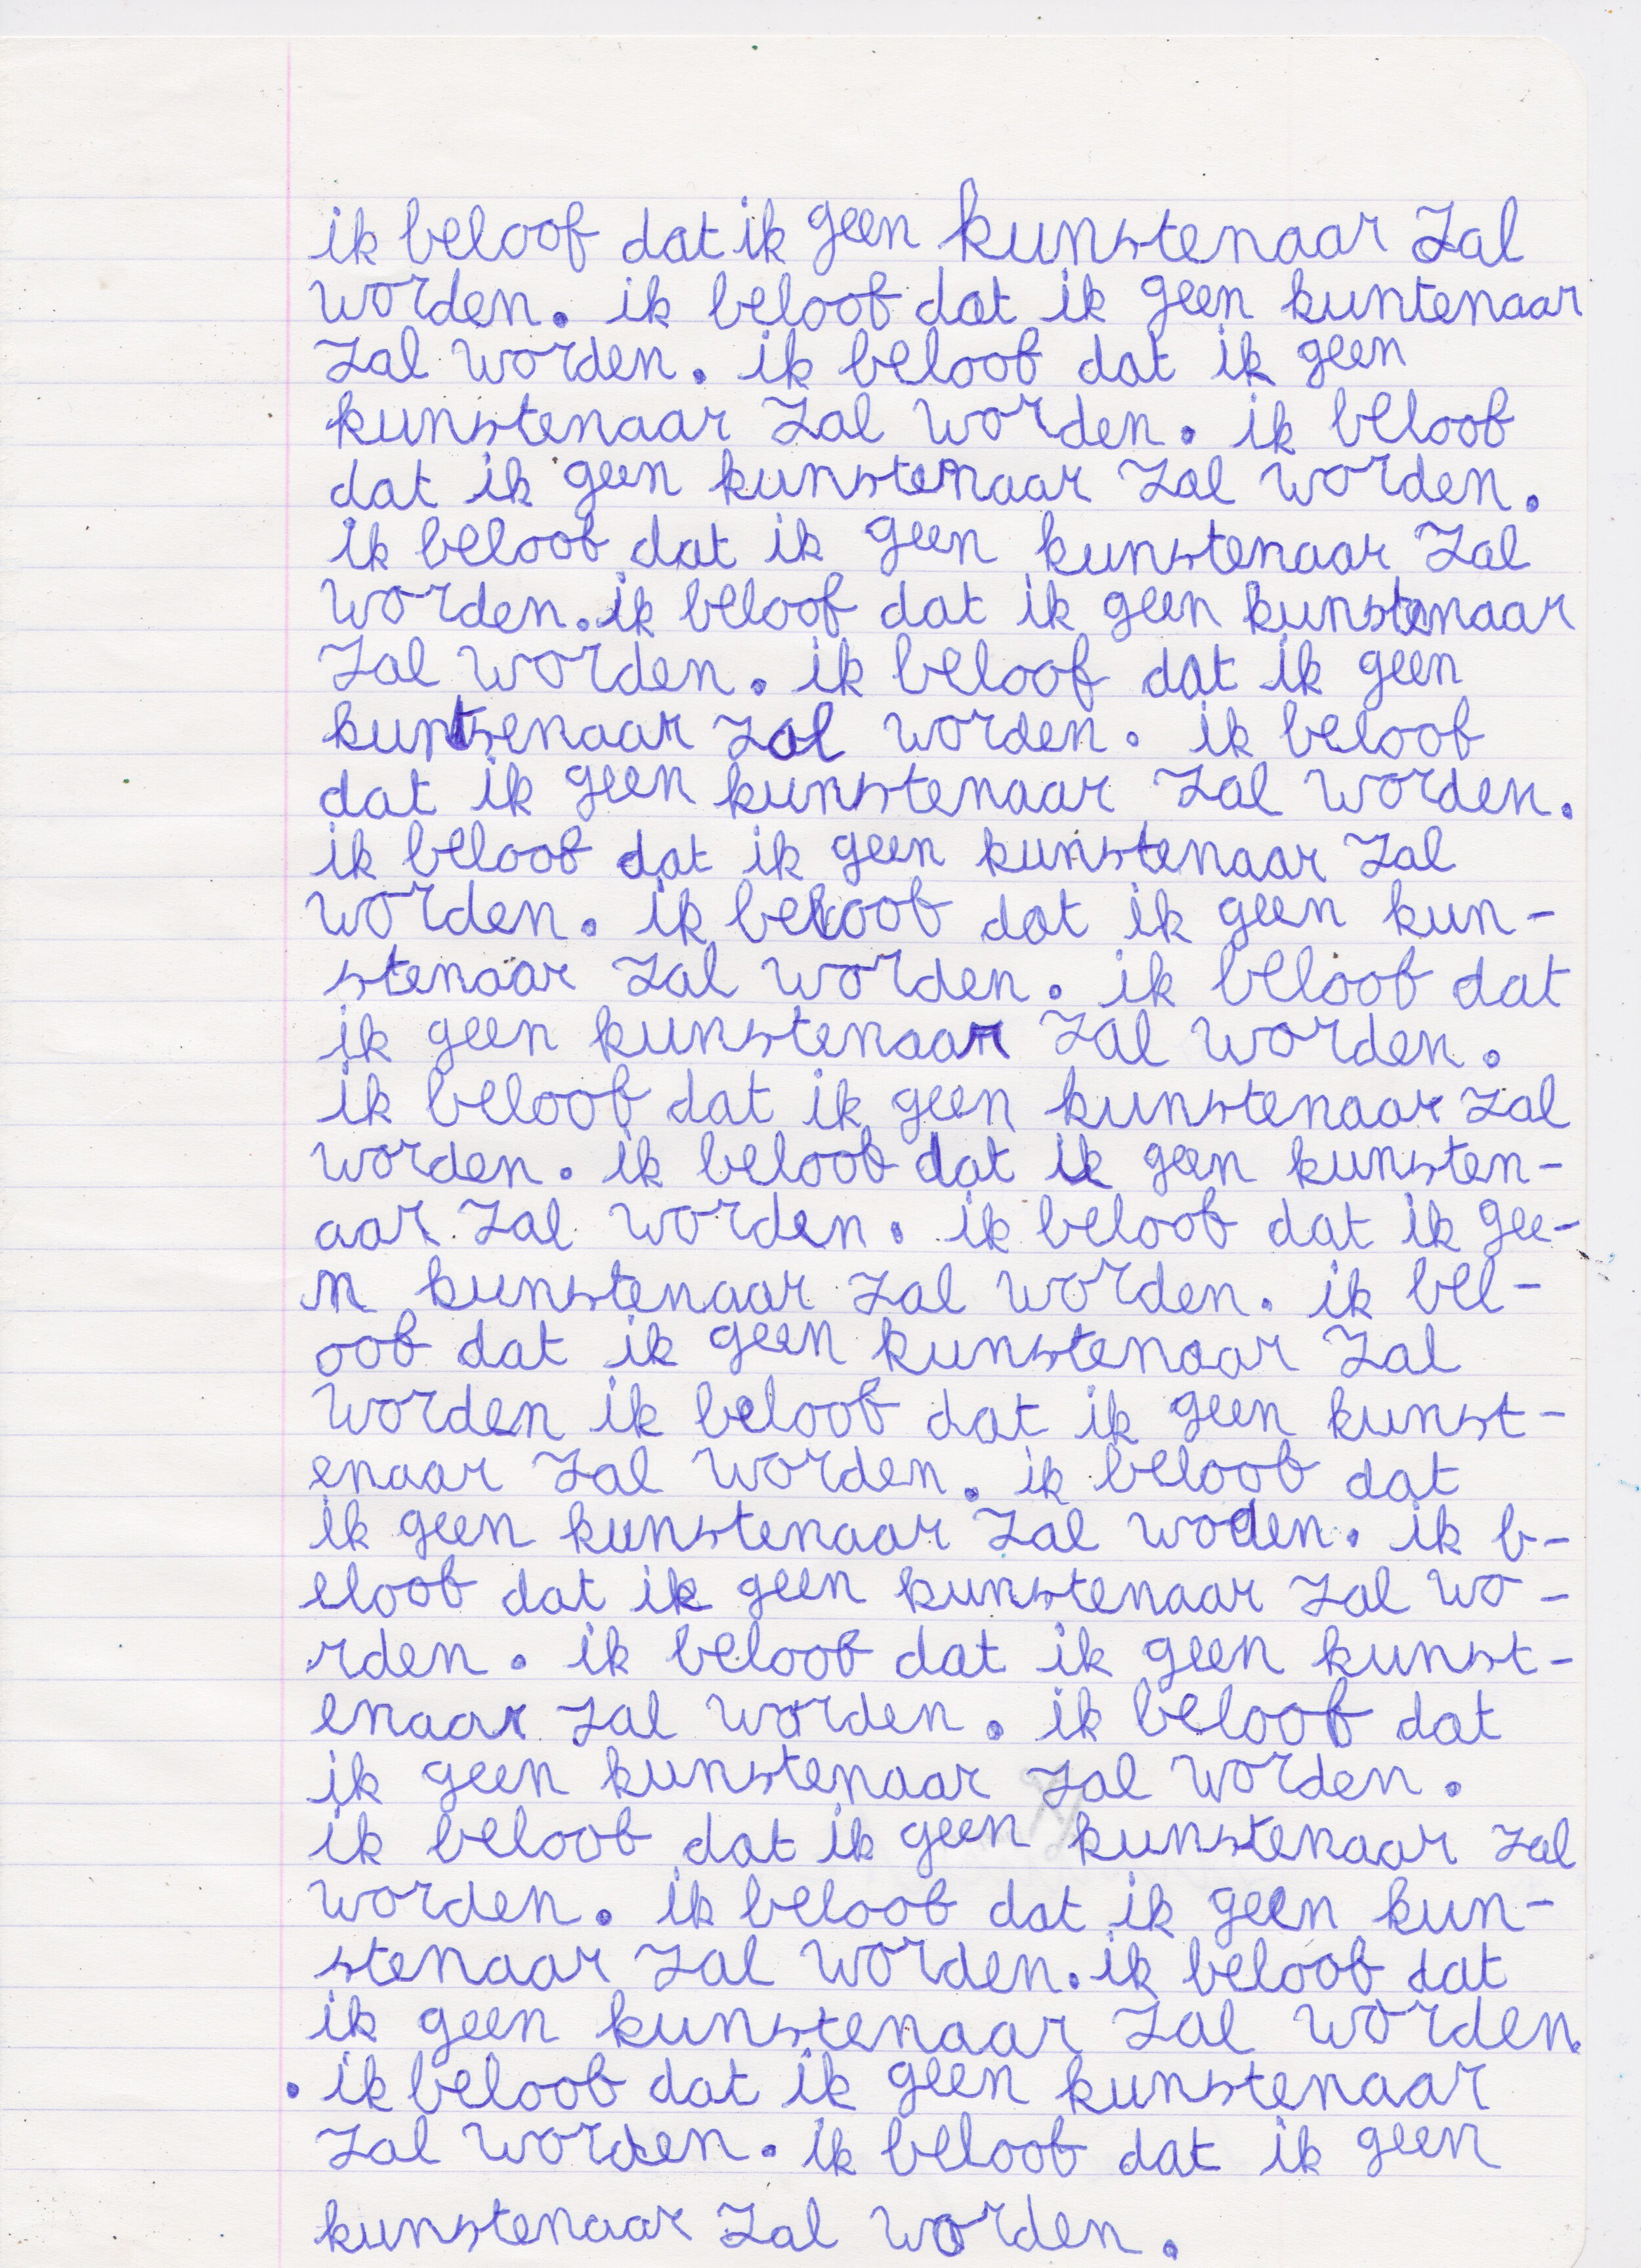 ik beloof dat ik geen kunstenaar zal
worden. ik beloof dat ik geen kuntenaar
zal worden. ik beloof dat ik geen
kunstenaar zal worden. ik beloof
dat ik geen kunstenaar zal worden.
ik beloof dat ik geen kunstenaar zal
worden. ik beloof dat ik geen kunstenaar
zal worden. ik beloof dat ik geen
kuntsenaar zal worden. ik beloof
dat ik geen kunstenaar zal worden.
ik beloof dat ik geen kunstenaar zal
worden. ik beloof dat ik geen kun-
stenaar zal worden. ik beloof dat
ik geen kunstenaar zal worden.
ik beloof dat ik geen kunstenaar zal
worden. ik beloof dat ik geen kunsten-
aar zal worden. ik beloof dat ik gee-
n kunstenaar zal worden. ik bel-
oof dat ik geen kunstenaar zal
worden ik beloof dat ik geen kunst-
enaar zal worden. ik beloof dat
ik geen kunstenaar zal woden. ik b-
eloof dat ik geen kunstenaar zal wo-
rden. ik beloof dat ik geen kunst-
enaar zal worden. ik beloof dat
ik geen kunstenaar zal worden.
ik beloof dat ik geen kunstenaar zal
worden. ik beloof dat ik geen kun-
stenaar zal worden. ik beloof dat
ik geen kunstenaar zal worden.
. ik beloof dat ik geen kunstenaar
zal worden. ik beloof dat ik geen
kunstenaar zal worden.